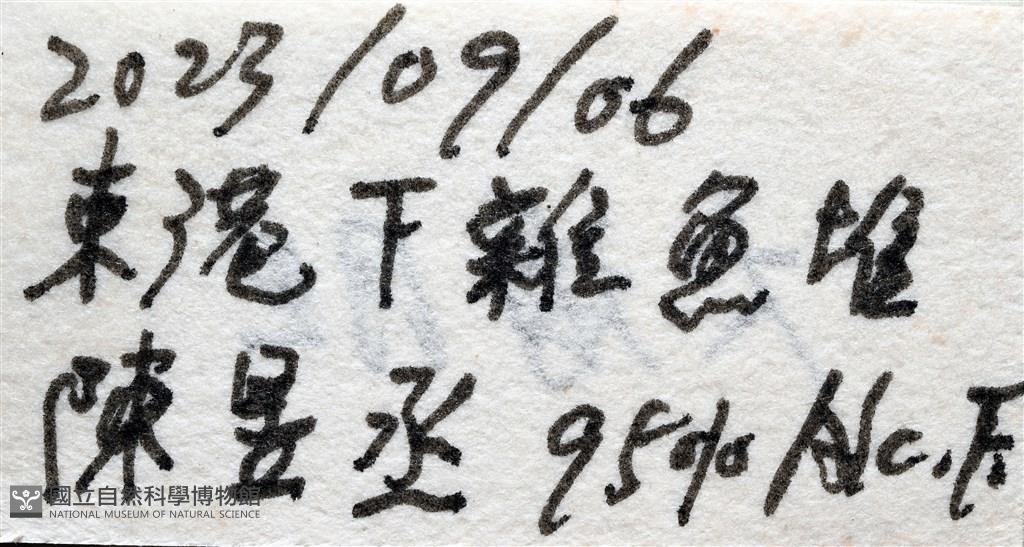 2023/09/06
東港下雜魚堆
陳昱丞 95% Alc.
國立自然科學博物館
NATIONAL MUSEUM OF NATURAL SCIENCE